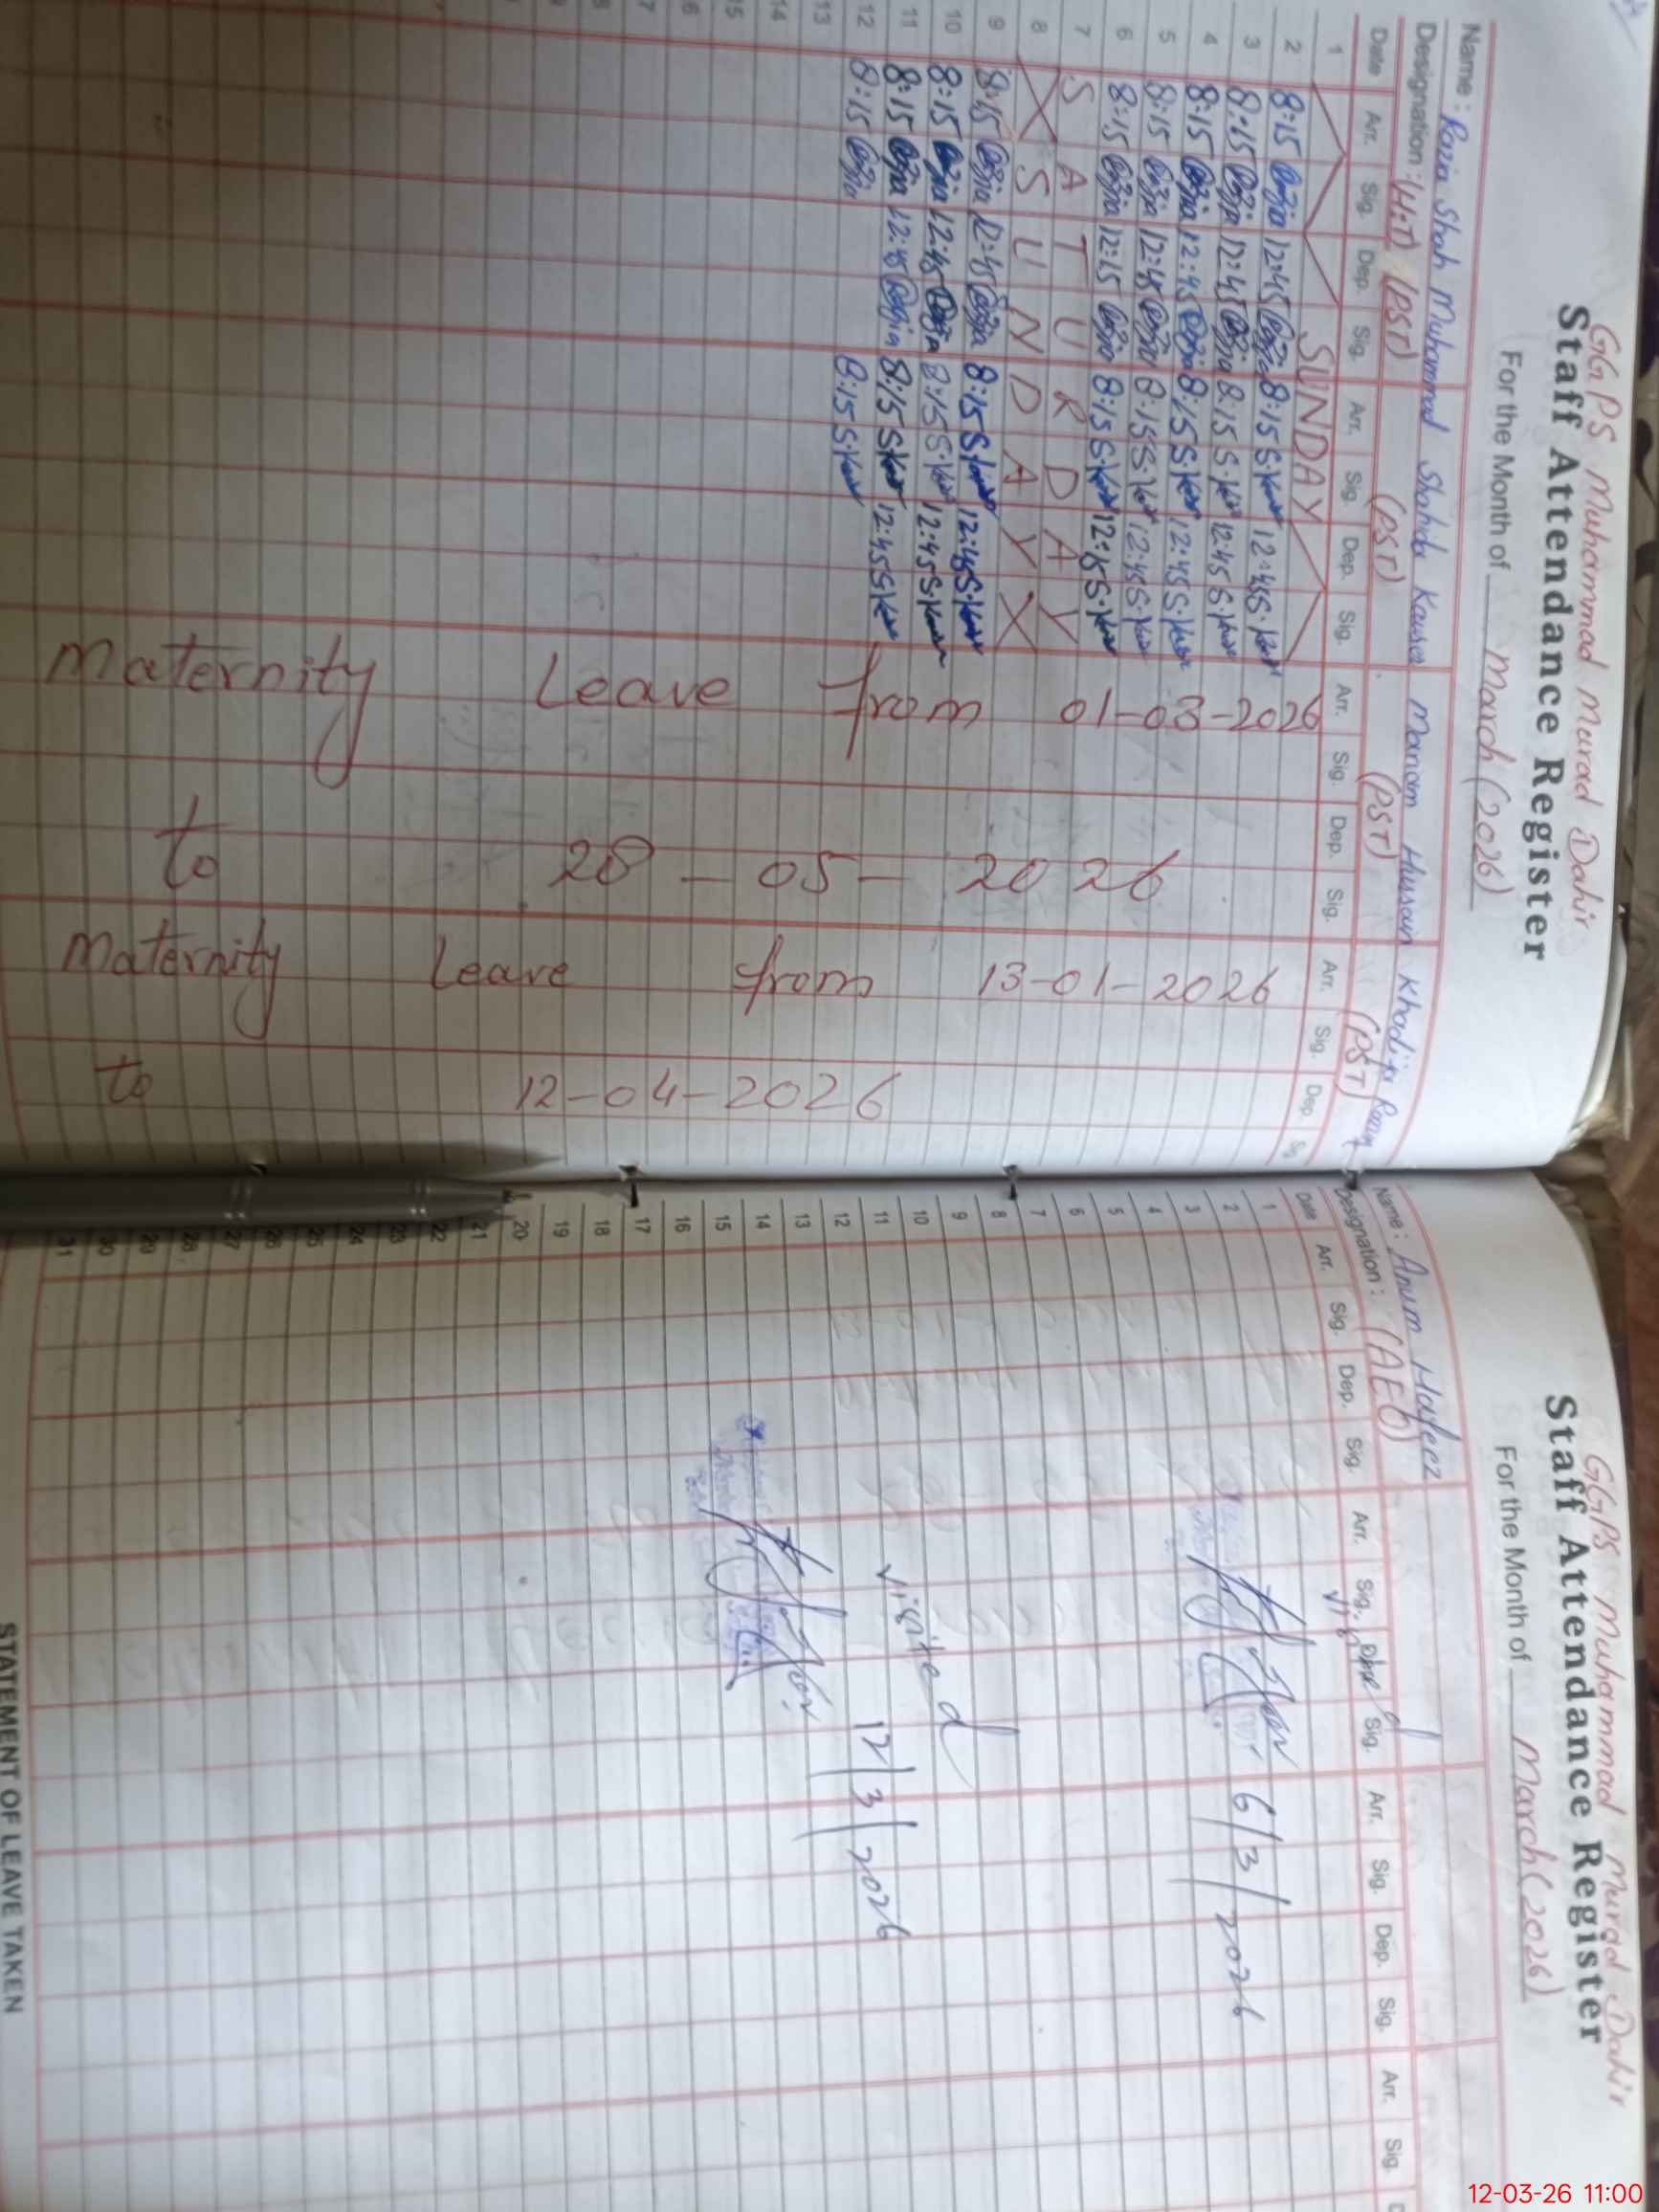 GGPS Muhammad Murad Dahir
Staff Attendance Register
For the Month of March (2026)
Name: Razia Shah Muhammad Shahida Kauser Mariam Hussain Khadija
Designation: (H.T) (PST) (PST) (PST) (PST)
Date Arr. Sig. Dep. Sig. Arr. Sig. Dep. Sig. Arr. Sig. Dep. Sig. Arr. Sig. Dep. Sig.
1 SUNDAY
2 8:15 Razia 12:45 Razia 8:15 S.Kausar 12:45 S.Kausar
3 8:15 Razia 12:45 Razia 8:15 S.Kausar 12:45 S.Kausar
4 8:15 Razia 12:45 Razia 8:15 S.Kausar 12:45 S.Kausar
5 8:15 Razia 12:45 Razia 8:15 S.Kausar 12:45 S.Kausar
6 8:15 Razia 12:15 Razia 8:15 S.Kausar 12:15 S.Kausar
7 SATURDAY
8 SUNDAY
9 8:15 Razia 12:45 Razia 8:15 S.Kausar 12:45 S.Kausar
10 8:15 Razia 12:45 Razia 8:15 S.Kausar 12:45 S.Kausar
11 8:15 Razia 12:45 Razia 8:15 S.Kausar 12:45 S.Kausar
12 8:15 Razia 8:15 S.Kausar
13
14
15
16
17
Maternity Leave from 01-03-2026
to 28-05-2026
Maternity Leave from 13-01-2026
to 12-04-2026
GGPS Muhammad Murad Dahir
Staff Attendance Register
For the Month of March (2026)
Name: Anum Hafeez
Designation: (AEO)
Date Arr. Sig. Dep. Sig. Arr. Sig. Dep. Sig. Arr. Sig. Dep. Sig. Arr. Sig.
1
2
3
4
5
6
7
8
9
10
11
12
13
14
15
16
17
18
19
20
21
22
23
24
25
26
27
28
29
30
31
visited
6/3/2026
visited
12/3/2026
STATEMENT OF LEAVE TAKEN
12-03-26 11:00